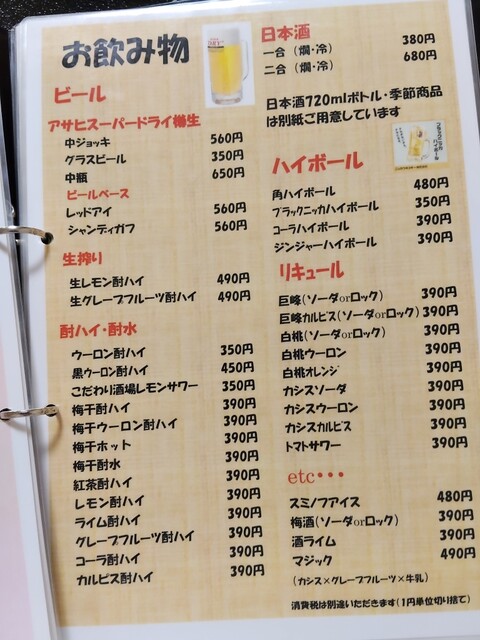 お飲み物
ビール
アサヒスーパードライ樽生
中ジョッキ 560円
グラスビール 350円
中瓶 650円
ビールベース
レッドアイ 560円
シャンディガフ 560円
生搾り
生レモン酎ハイ 490円
生グレープフルーツ酎ハイ 490円
酎ハイ・酎水
ウーロン酎ハイ 350円
黒ウーロン酎ハイ 450円
こだわり酒場レモンサワー 350円
梅干酎ハイ 390円
梅干ウーロン酎ハイ 390円
梅干ホット 390円
梅干酎水 390円
紅茶酎ハイ 390円
レモン酎ハイ 390円
ライム酎ハイ 390円
グレープフルーツ酎ハイ 390円
コーラ酎ハイ 390円
カルピス酎ハイ 390円
日本酒
一合（燗・冷） 380円
二合（燗・冷） 680円
日本酒720mlボトル・季節商品
は別紙ご用意しています
ハイボール
角ハイボール 480円
ブラックニッカハイボール 350円
コーラハイボール 390円
ジンジャーハイボール 390円
リキュール
巨峰（ソーダorロック） 390円
巨峰カルピス（ソーダorロック） 390円
白桃（ソーダorロック） 390円
白桃ウーロン 390円
白桃オレンジ 390円
カシスソーダ 390円
カシスウーロン 390円
カシスカルピス 390円
トマトサワー 390円
etc・・・
スミノフアイス 480円
梅酒（ソーダorロック） 390円
酒ライム 390円
マジック 490円
（カシス×グレープフルーツ×牛乳）
消費税は別途いただきます（1円単位切り捨て）